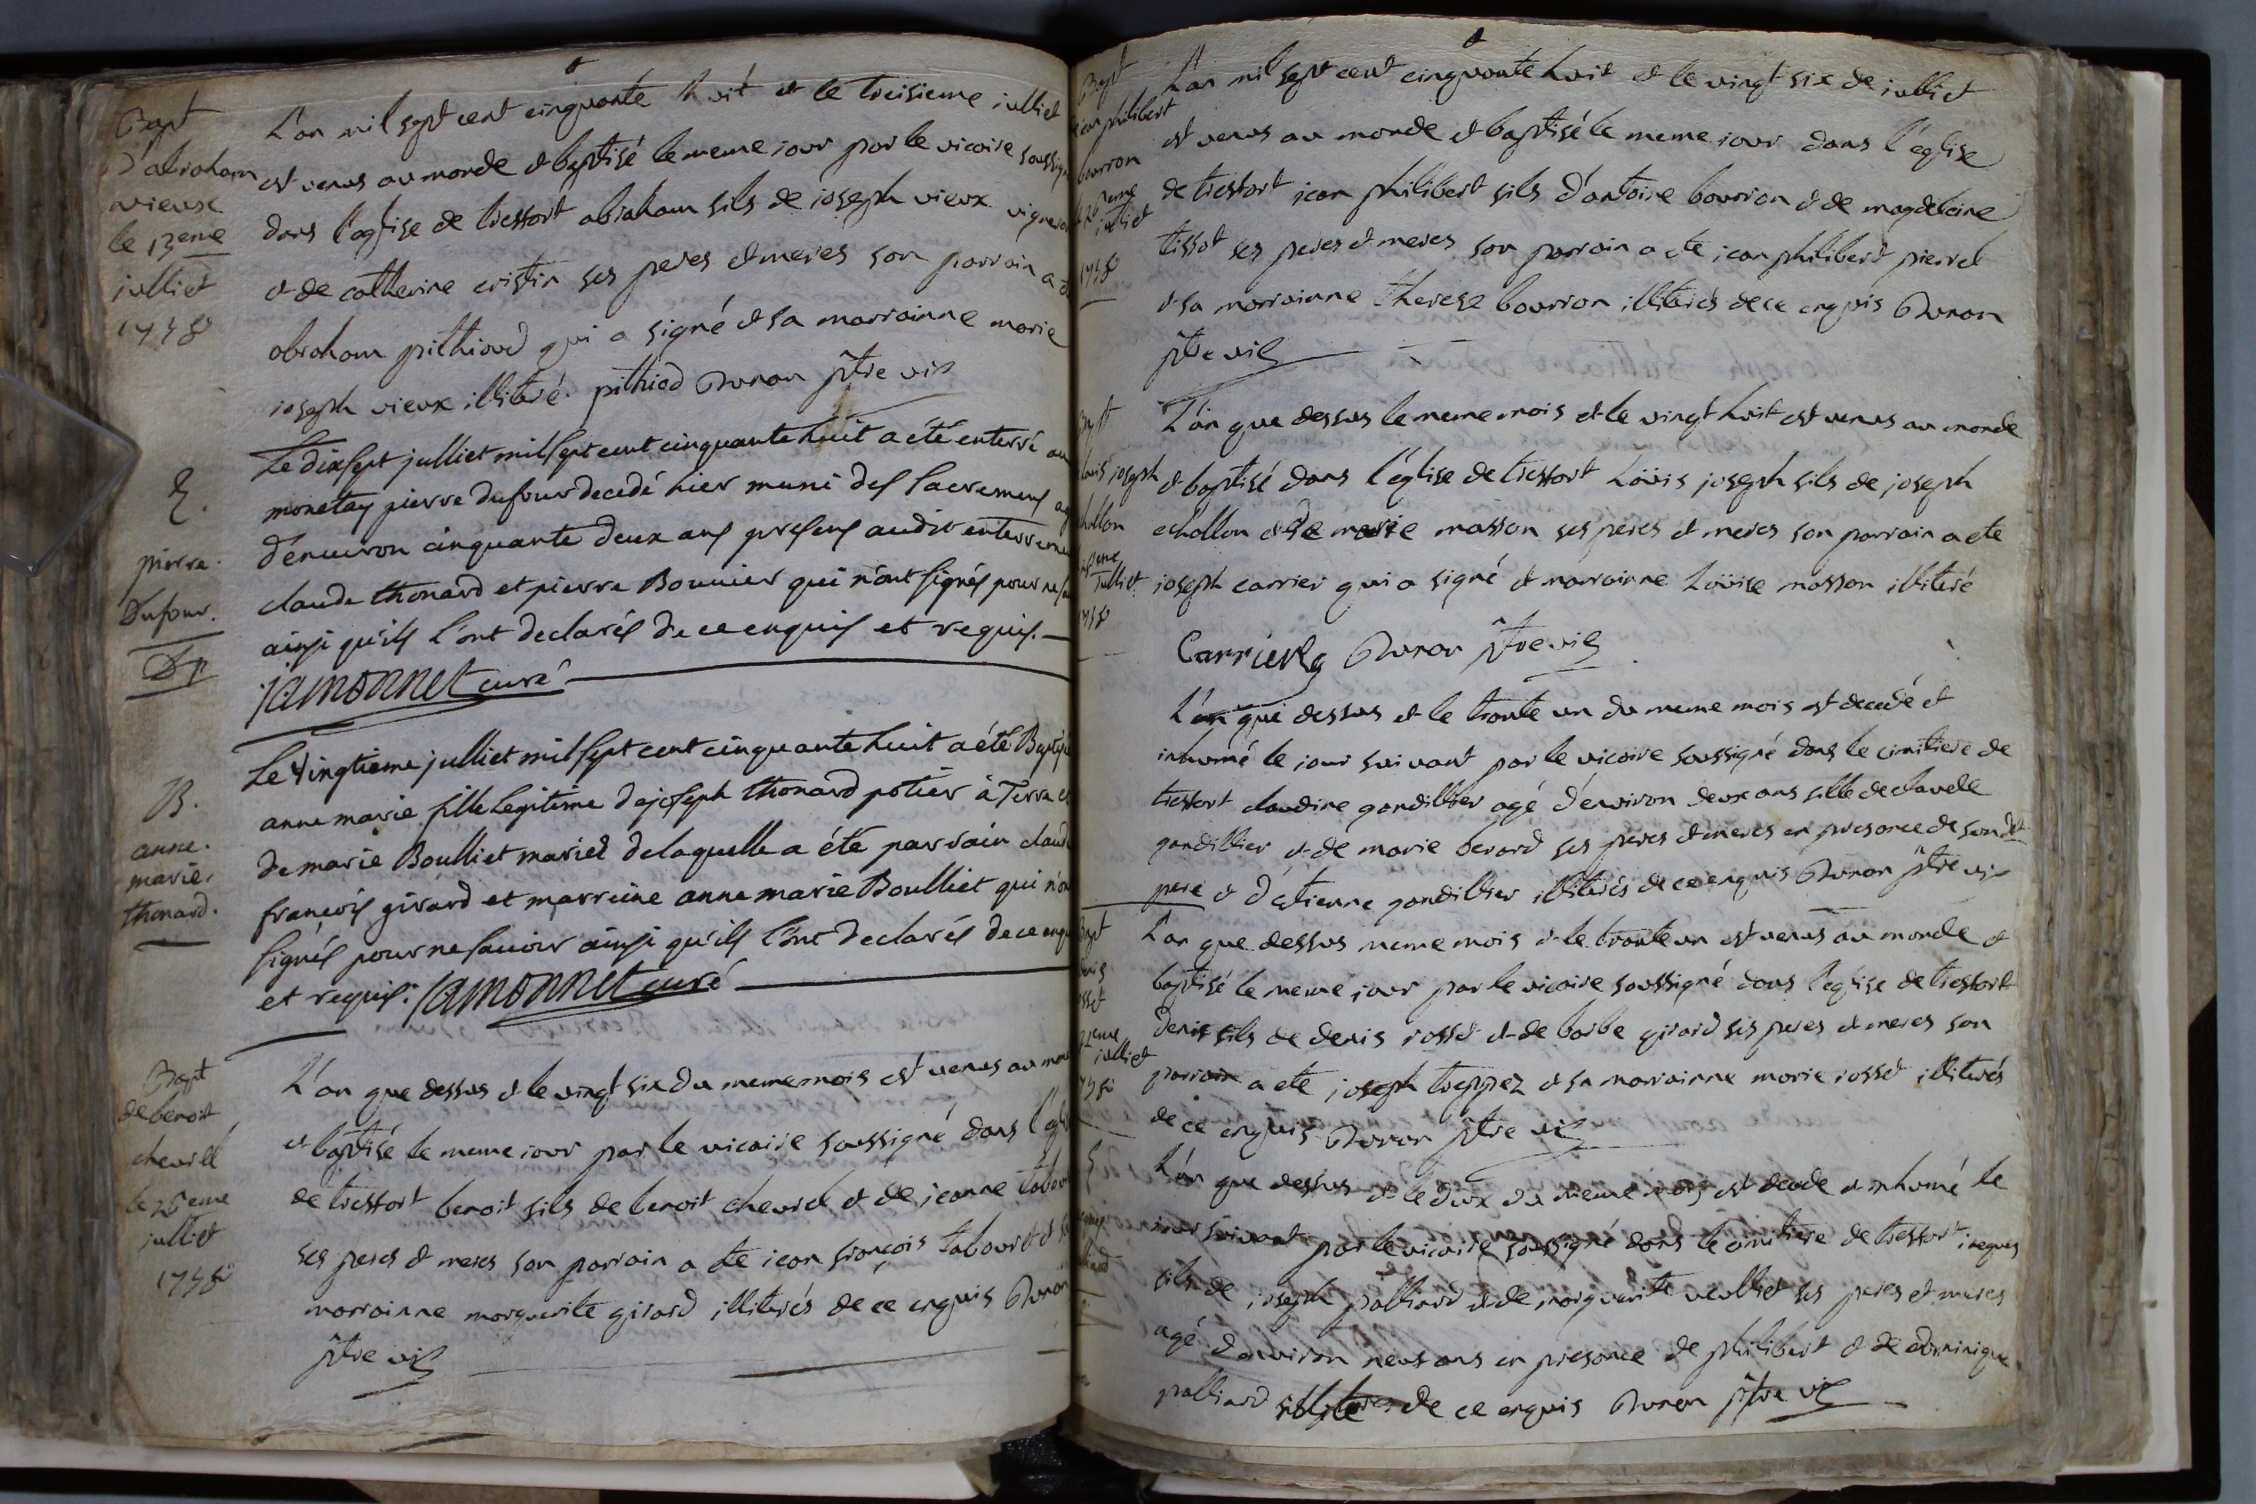 Bapt
d'abraham
vieux
le 13eme
julliet
1758
L'an mil sept cent cinquante huit et le treisieme julliet
est venus au monde et baptisé le meme iour par le vicaire soussigné
dans l'eglise de tressort abraham fils de ioseph vieux vigneron
et de catherine cristin ses peres et meres son parrain a
abraham pithioud qui a signé et sa marrainne marie
ioseph vieux illiteré. pithiod Duron ptre vic
E.
pierre.
Dufour.
Le dixsept julliet mil sept cent cinquante huit a été enterré au
monetay pierre dufour decedé hier muni des sacremens
d'enuiron cinquante deux ans presens audit enterrement
claude thonard et pierre Bouuier qui n'ont signés pour ne
ainsi qu'ils l'ont declarés de ce enquis et requis.
jamonnet curé
B.
anne.
marie.
thonard.
Le vingtieme julliet mil sept cent cinquante huit a été Baptisé
anne marie fille legitime de joseph thonard potier à Terre et
de marie Boulliet mariés delaquelle a été parrain claude
francois girard et marreine anne marie Boulliet qui n'ont
signés pour ne sauoir ainsi qu'ils l'ont declarés de ce enquis
et requis. jamonnet curé
Bapt
de benoit
chevrel
le 26eme
julliet
1758
L'an que dessus et le vingt six du meme mois est venus au monde
et baptisé le meme iour par le vicaire soussigné dans l'eglise
de tressort benoit fils de benoit chevrel et de jeanne
ses peres et meres son parrain a ete jean françois tabouret et
marrainne marguerite girard illiterés de ce enquis Duron
ptre vic
Bapt
jean philibert
bourron
le 26eme
julliet
1758
L'an mil sept cent cinquante huit et le vingt six de julliet
est venus au monde et baptisé le meme iour dans l'église
de tressort jean philibert fils d'antoine bourron et de magdeleine
tissot ses peres et meres son parrain a ete jean philibert pierrel
et sa marrainne therese bourron illiterés de ce enquis Duron
ptre vic
louis joseph
julliet
1758
L'an que dessus le meme mois et le vingt huit est venus au monde
et baptisé dans l'église de tressort Loüis joseph fils de joseph
echallon et de marie masson ses peres et meres son parrain a ete
ioseph carrier qui a signé et marrainne Loüise masson illiteré
Carrier Duron ptre vic
L'an que dessus et le trente un du meme mois est decedé et
inhumé le iour suivant par le vicaire soussigné dans le cimitiere de
tressort claudine gandillier agé d'environ deux ans fille de claude
gandillier et de marie berard ses peres et meres en presance de son dit
pere et d'etienne gandillier illiterés de ce enquis Duron ptre vic
Bapt
denis
rosset
julliet
1758
L'an que dessus meme mois et le trente un est venus au monde et
baptisé le meme iour par le vicaire soussigné dans l'eglise de tressort
denis fils de denis rosset et de barbe girard ses peres et meres son
parrain a ete joseph treppez et sa marrainne marie rosset illiterés
de ce enquis Duron ptre vic
L'an que dessus et le deux du meme mois est decede et inhumé le
iour suivant par le vicaire soussigné dans le cimitiere de tressort jaques
fils de joseph palliard et de marguerite veulliet ses peres et meres
agé d'environ neuf ans en presance de philibert et de dominique
palliard illiterés de ce enquis Duron ptre vic